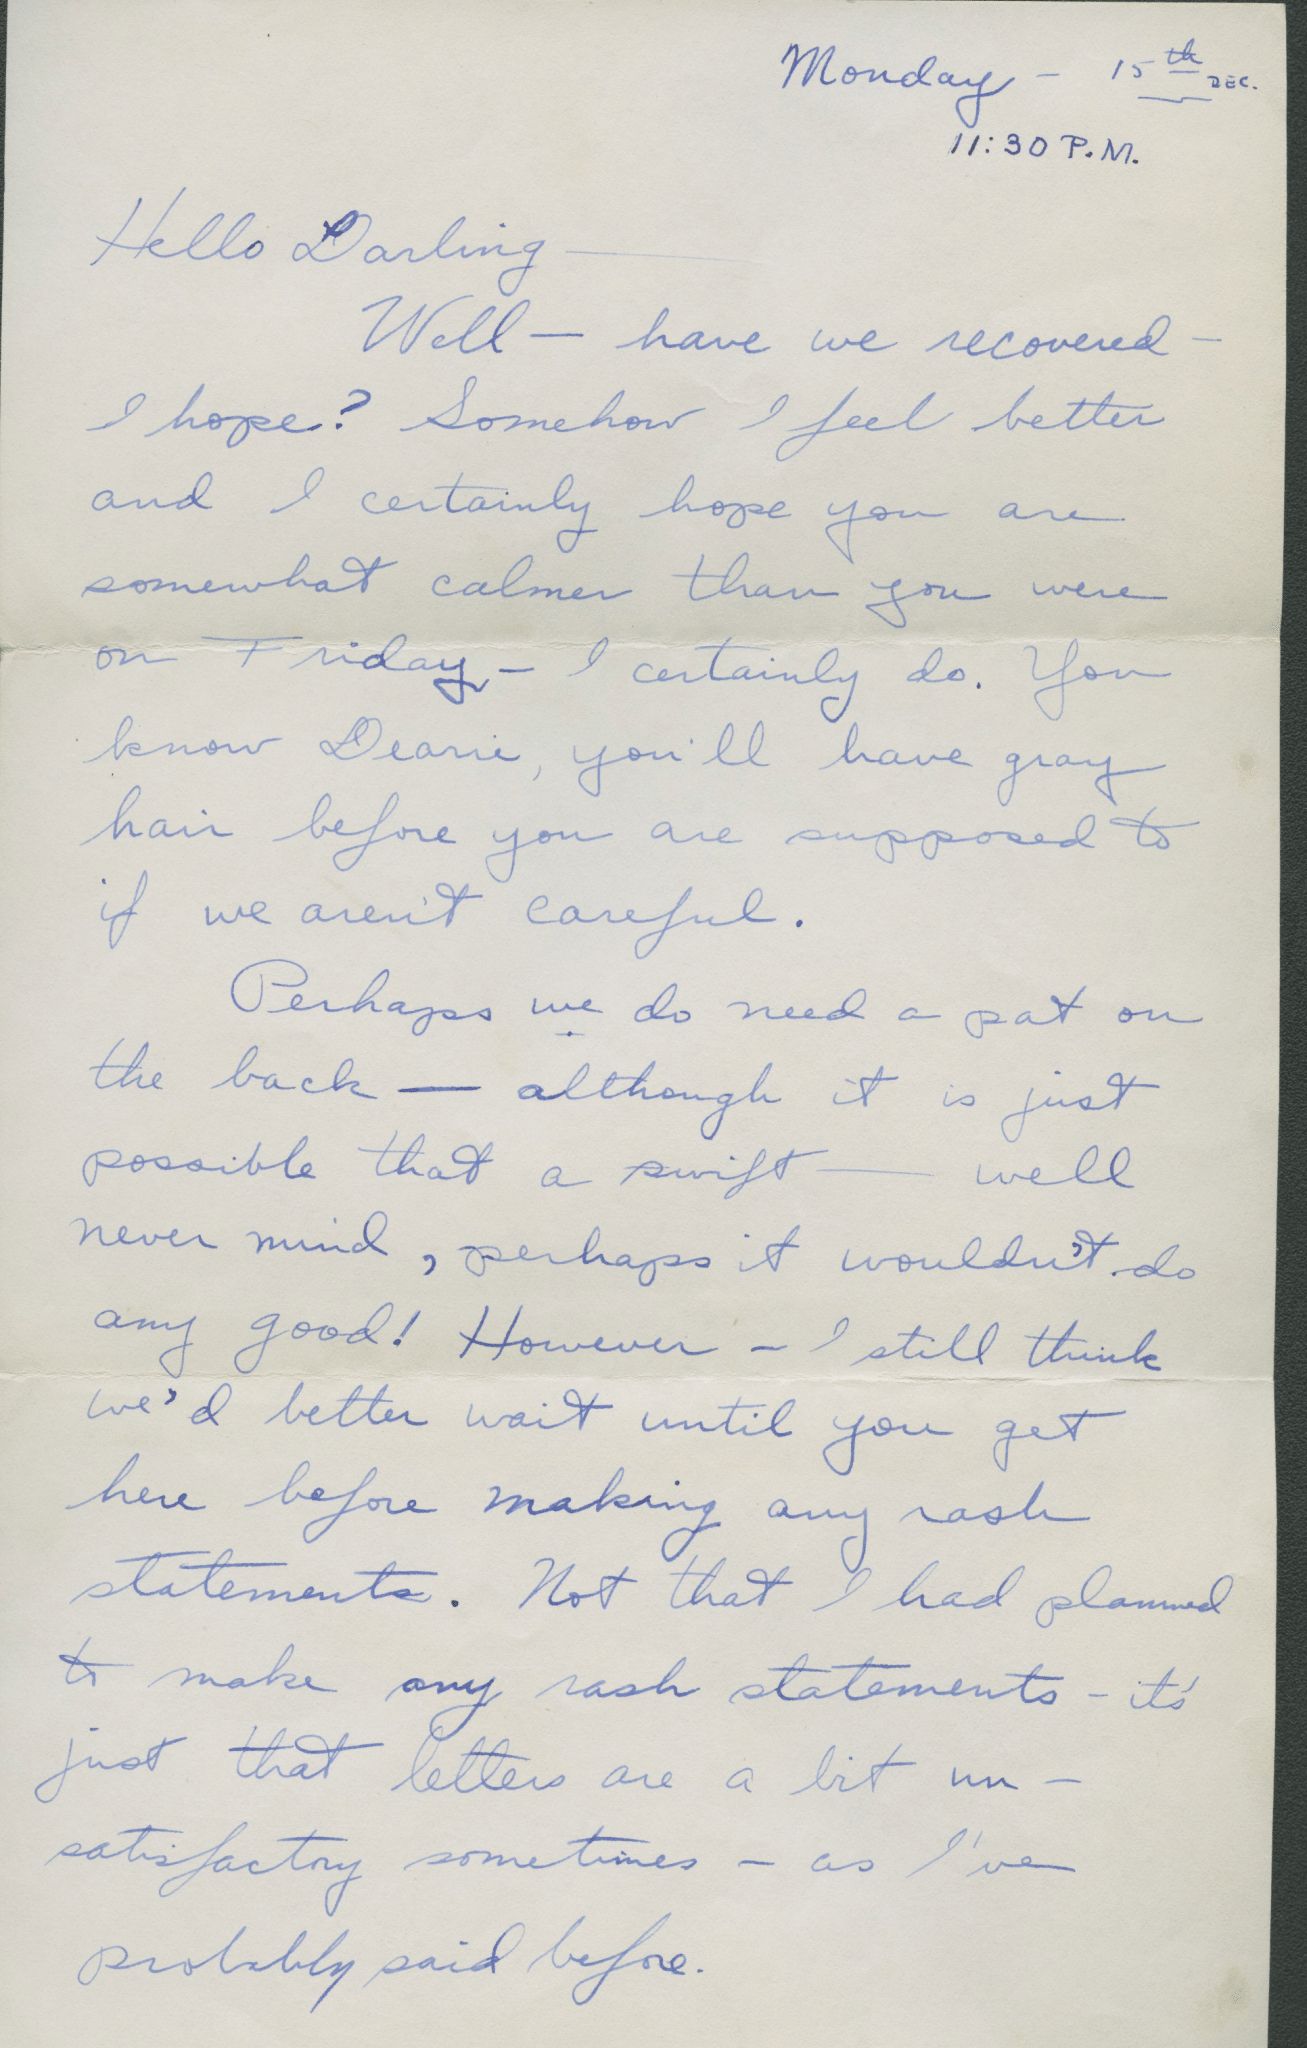 Monday - 15th DEC.
11:30 P.M.
Hello Darling —
Well — have we recovered -
I hope? Somehow I feel better
and I certainly hope you are
somewhat calmer than you were
on Friday - I certainly do. You
know Dearie, you'll have gray
hair before you are supposed to
if we aren't careful.
Perhaps we do need a pat on
the back — although it is just
possible that a swift — well
never mind, perhaps it wouldn't do
any good! However - I still think
we'd better wait until you get
here before making any rash
statements. Not that I had planned
to make any rash statements - it's
just that letters are a bit un-
satisfactory sometimes - as I've
probably said before.